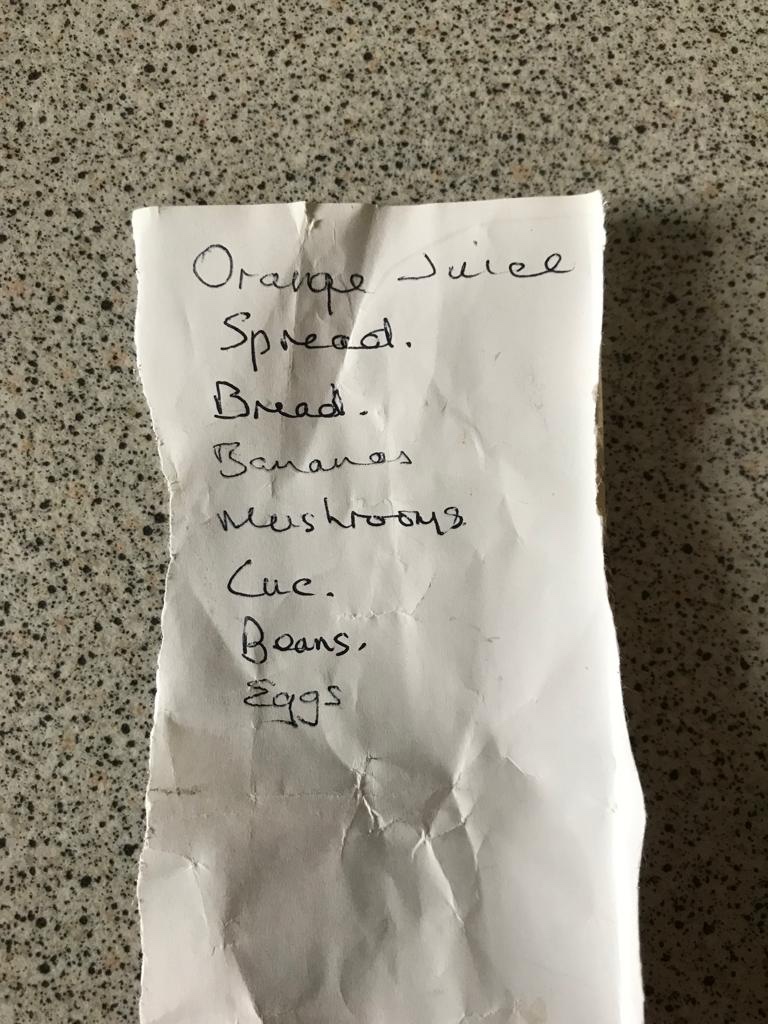 Orange Juice
Spread.
Bread.
Bananas
Mushrooms
Cuc.
Beans.
Eggs